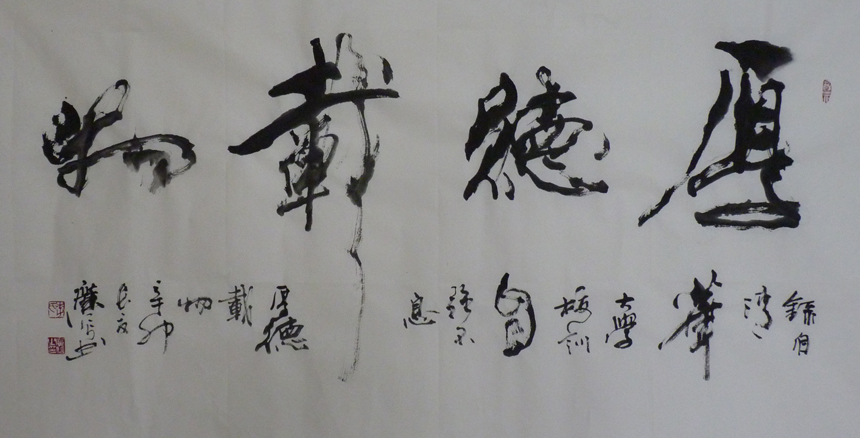 厚德載物
錄自
清
華
大學
校訓
自
強不
息
厚德
載
物
辛卯